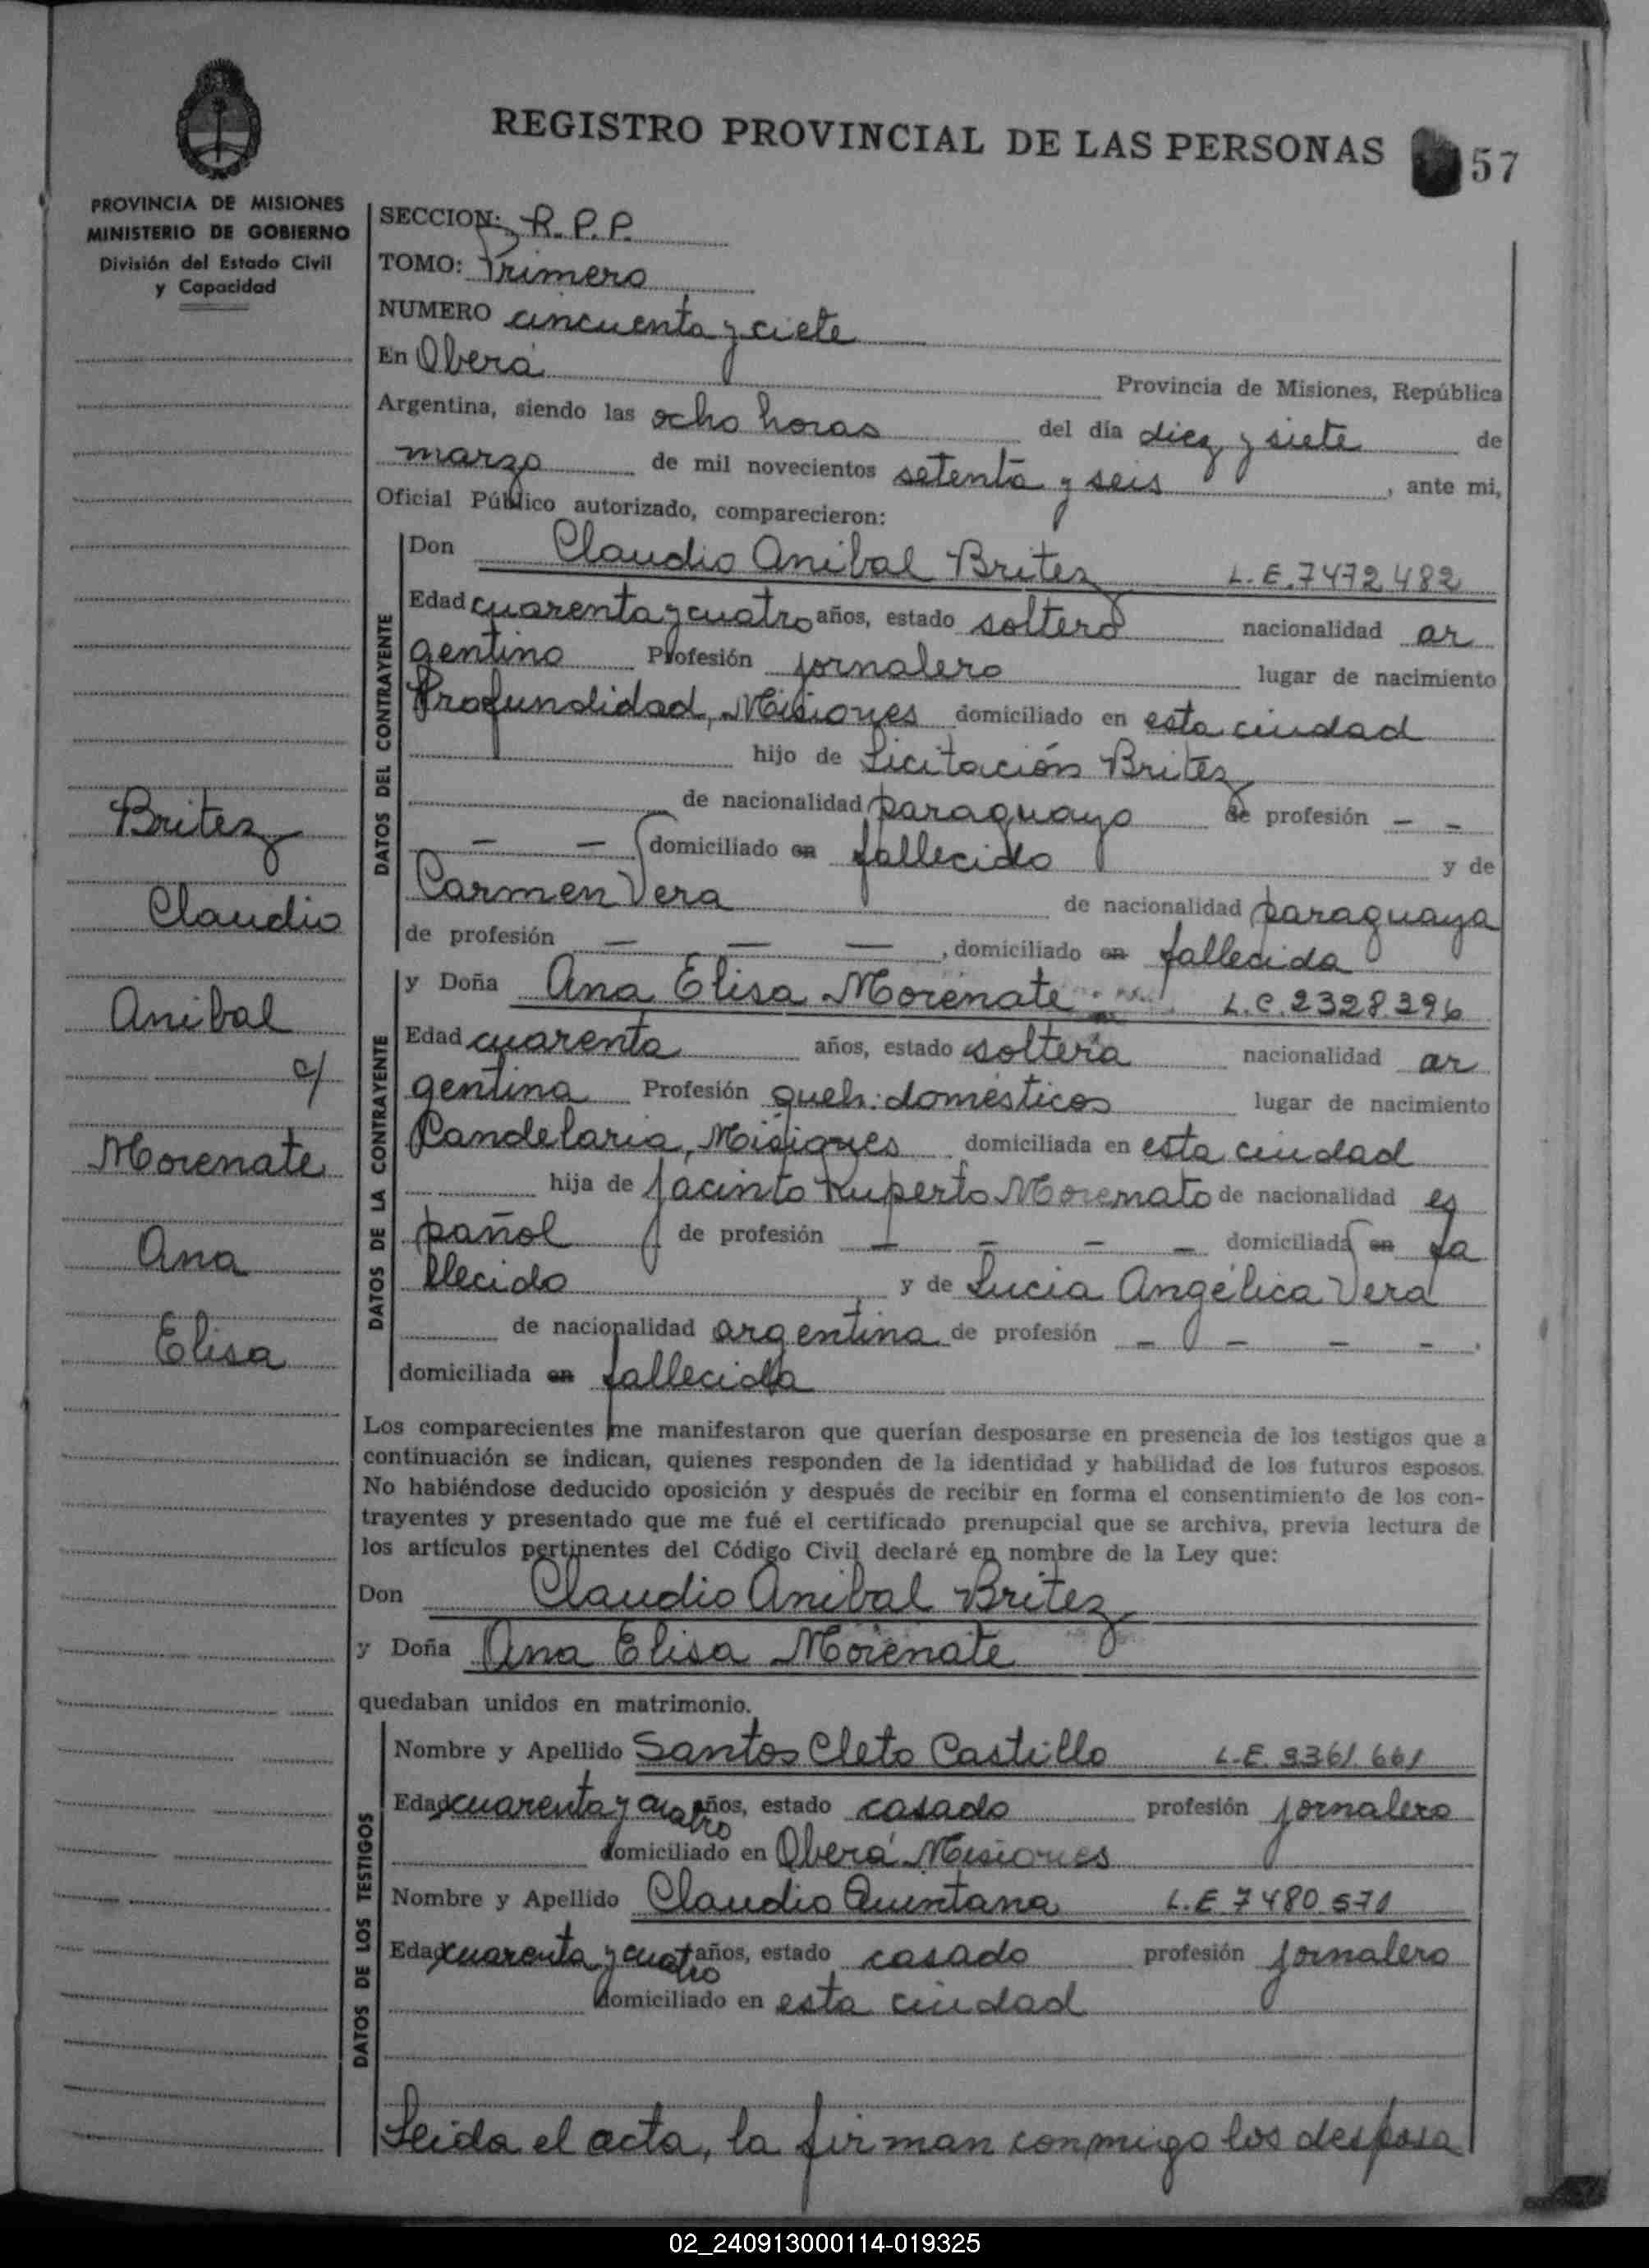 REGISTRO PROVINCIAL DE LAS PERSONAS
57
PROVINCIA DE MISIONES
MINISTERIO DE GOBIERNO
División del Estado Civil
y Capacidad
SECCION: R.P.P.
TOMO: Primero
NUMERO cincuenta y ciete
En Oberá Provincia de Misiones, República
Argentina, siendo las ocho horas del día diez y siete de
marzo de mil novecientos setenta y seis, ante mi,
Oficial Público autorizado, comparecieron:
DATOS DEL CONTRAYENTE
Don Claudio Anibal Britez L.E. 7472482
Edad cuarenta y cuatro años, estado soltero nacionalidad ar
gentino Profesión jornalero lugar de nacimiento
Profundidad, Misiones domiciliado en esta ciudad
hijo de Licitación Britez
de nacionalidad paraguayo de profesión - -
- - domiciliado en fallecido y de
Carmen Vera de nacionalidad paraguaya
de profesión - - -, domiciliado en fallecida
DATOS DE LA CONTRAYENTE
y Doña Ana Elisa Morenate L.C. 2328.396
Edad cuarenta años, estado soltera nacionalidad ar
gentina Profesión queh. domésticos lugar de nacimiento
Candelaria, Misiones domiciliada en esta ciudad
hija de Jacinto Ruperto Morenato de nacionalidad es
pañol de profesión - - - - domiciliada en fa
llecido y de Lucia Angélica Vera
de nacionalidad argentina de profesión - - - -,
domiciliada en fallecida
Britez
Claudio
Anibal
c/
Morenate
Ana
Elisa
Los comparecientes me manifestaron que querían desposarse en presencia de los testigos que a
continuación se indican, quienes responden de la identidad y habilidad de los futuros esposos.
No habiéndose deducido oposición y después de recibir en forma el consentimiento de los con-
trayentes y presentado que me fué el certificado prenupcial que se archiva, previa lectura de
los artículos pertinentes del Código Civil declaré en nombre de la Ley que:
Don Claudio Anibal Britez
y Doña Ana Elisa Morenate
quedaban unidos en matrimonio.
DATOS DE LOS TESTIGOS
Nombre y Apellido Santos Cleto Castillo L.E. 9361.661
Edad cuarenta y cuatro años, estado casado profesión jornalero
domiciliado en Oberá Misiones
Nombre y Apellido Claudio Quintana L.E 7480.571
Edad cuarenta y cuatro años, estado casado profesión jornalero
domiciliado en esta ciudad
Leida el acta, la firman conmigo los desposa
02_240913000114-019325